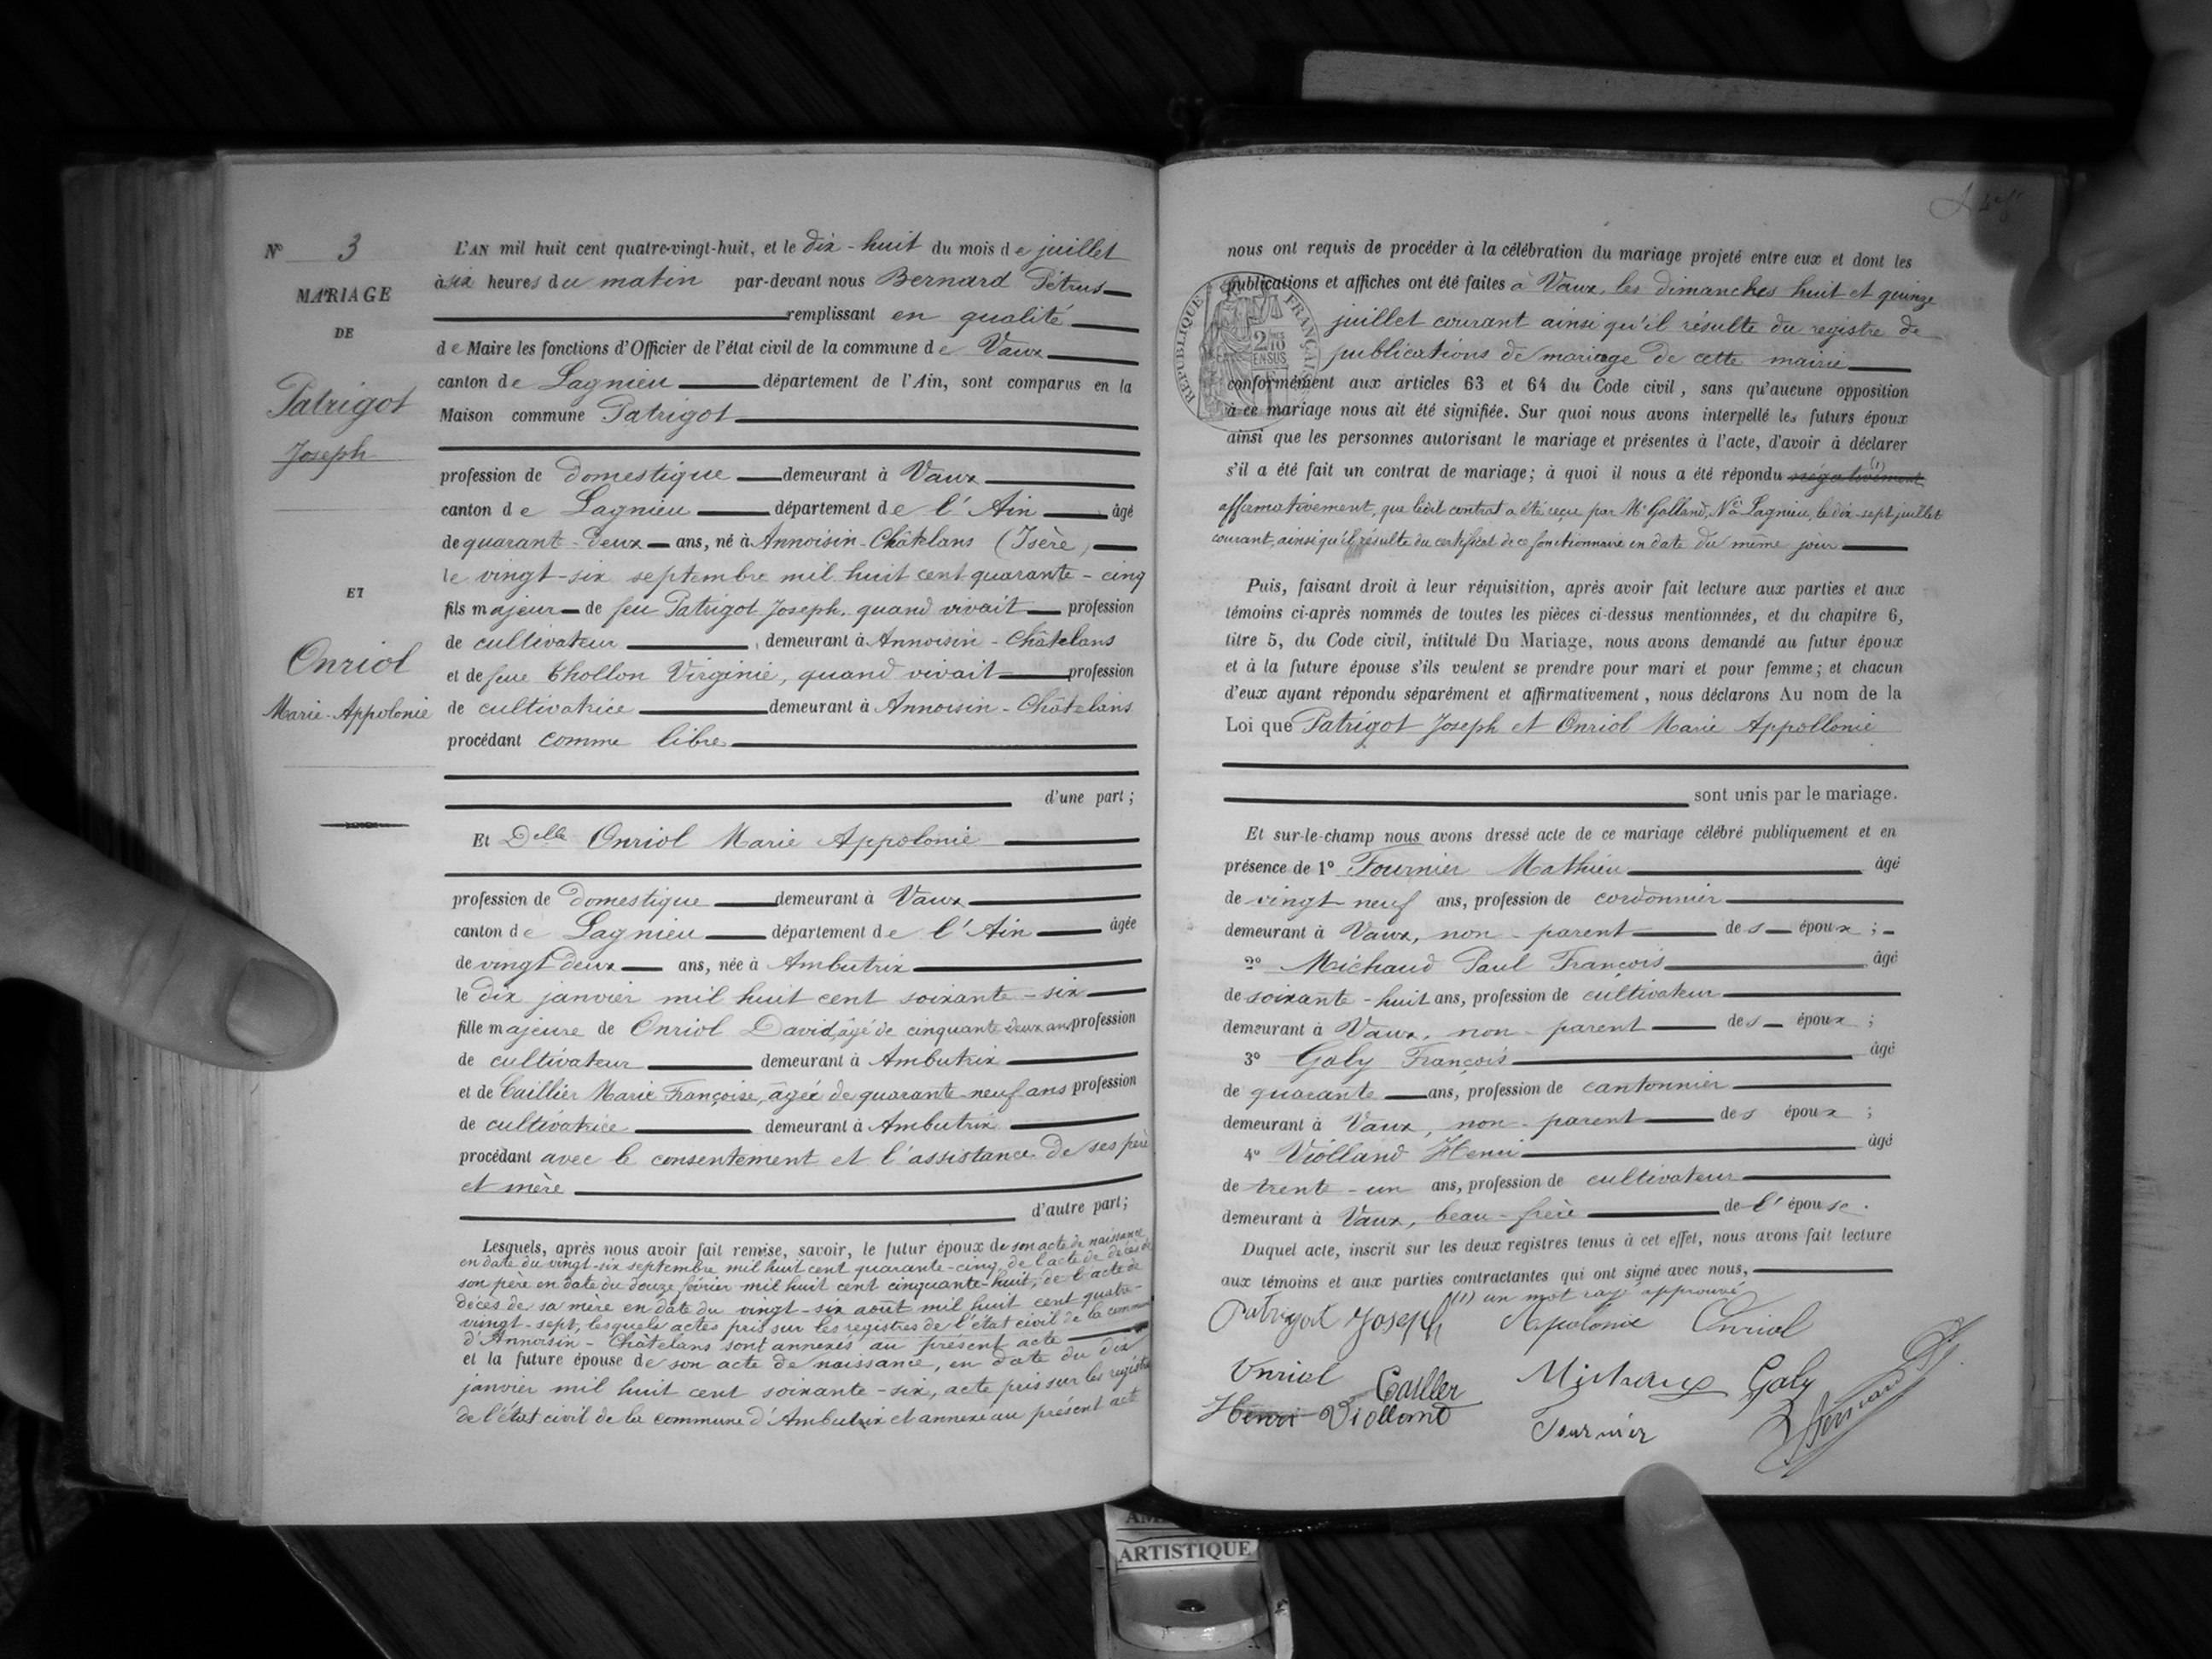 N° 3
MARIAGE
DE
Patrigot
Joseph
ET
Onriol
Marie-Appolonie
L'AN mil huit cent quatre-vingt-huit, et le dix-huit du mois de juillet
à six heures du matin par-devant nous Bernard Pétrus
remplissant en qualité
de Maire les fonctions d'Officier de l'état civil de la commune de Vaux
canton de Lagnieu département de l'Ain, sont comparus en la
Maison commune Patrigot
profession de domestique demeurant à Vaux
canton de Lagnieu département de l'Ain âgé
de quarant-deux ans, né à Annoisin-Châtelans (Isère)
le vingt-six septembre mil huit cent quarante-cinq
fils majeur de feu Patrigot Joseph, quand vivait profession
de cultivateur, demeurant à Annoisin-Châtelans
et de feue Chollon Virginie, quand vivait profession
de cultivatrice demeurant à Annoisin-Châtelans
procédant comme libre
d'une part;
Et Delle Onriol Marie Appolonie
profession de domestique demeurant à Vaux
canton de Lagnieu département de l'Ain âgée
de vingt deux ans, née à Ambutrix
le dix janvier mil huit cent soixante-six
fille majeure de Onriol David, âgé de cinquante deux ans profession
de cultivateur demeurant à Ambutrix
et de Caillier Marie Françoise, âgée de quarante-neuf ans profession
de cultivatrice demeurant à Ambutrix
procédant avec le consentement et l'assistance de ses père
et mère
d'autre part;
Lesquels, après nous avoir fait remise, savoir, le futur époux de son acte de naissance
en date du vingt-six septembre mil huit cent quarante-cinq, de l'acte de décès de
son père en date du douze février mil huit cent cinquante-huit, de l'acte de
décès de sa mère en date du vingt-six août mil huit cent quatre-
vingt-sept, lesquels actes pris sur les registres de l'état civil de la commune
d'Annoisin-Châtelans sont annexés au présent acte
et la future épouse de son acte de naissance, en date du dix
janvier mil huit cent soixante-six, acte pris sur les registres
de l'état civil de la commune d'Ambutrix et annexé au présent acte
nous ont requis de procéder à la célébration du mariage projeté entre eux et dont les
publications et affiches ont été faites à Vaux, les dimanches huit et quinze
juillet courant ainsi qu'il résulte du registre de
publications de mariage de cette mairie
REPUBLIQUE FRANÇAISE
2/10 EN SUS
conformément aux articles 63 et 64 du Code civil, sans qu'aucune opposition
à ce mariage nous ait été signifiée. Sur quoi nous avons interpellé les futurs époux
ainsi que les personnes autorisant le mariage et présentes à l'acte, d'avoir à déclarer
s'il a été fait un contrat de mariage; à quoi il nous a été répondu négativement (1)
affirmativement, que ledit contrat a été reçu par Me Golland, Nre à Lagnieu, le dix-sept juillet
courant, ainsi qu'il résulte du certificat de ce fonctionnaire en date du même jour
Puis, faisant droit à leur réquisition, après avoir fait lecture aux parties et aux
témoins ci-après nommés de toutes les pièces ci-dessus mentionnées, et du chapitre 6,
titre 5, du Code civil, intitulé Du Mariage, nous avons demandé au futur époux
et à la future épouse s'ils veulent se prendre pour mari et pour femme; et chacun
d'eux ayant répondu séparément et affirmativement, nous déclarons Au nom de la
Loi que Patrigot Joseph et Onriol Marie Appollonie
sont unis par le mariage.
Et sur-le-champ nous avons dressé acte de ce mariage célébré publiquement et en
présence de 1° Fournier Mathieu âgé
de vingt neuf ans, profession de cordonnier
demeurant à Vaux, non-parent des époux;
2° Michaud Paul François âgé
de soixante-huit ans, profession de cultivateur
demeurant à Vaux, non-parent des époux;
3° Goly François âgé
de quarante ans, profession de cantonnier
demeurant à Vaux, non-parent des époux;
4° Violland Henri âgé
de trente-un ans, profession de cultivateur
demeurant à Vaux, beau-frère de l'épouse.
Duquel acte, inscrit sur les deux registres tenus à cet effet, nous avons fait lecture
aux témoins et aux parties contractantes qui ont signé avec nous,
(1) un mot rayé approuvé
Patrigot Joseph Apolonie Onriol
Onriol Cailler Michaud Goly
Henri Violland Fournier Bernard
ARTISTIQUE